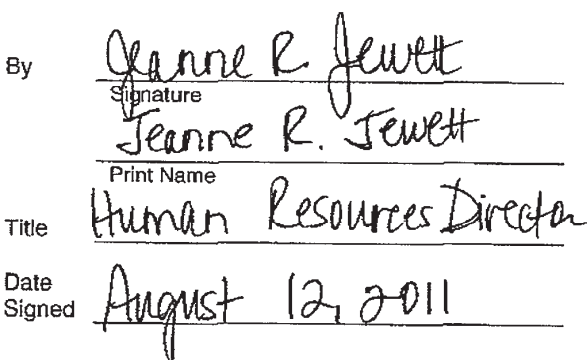 By Jeanne R. Jewett
Signature
Jeanne R. Jewett
Print Name
Title Human Resources Director
Date Signed August 12, 2011